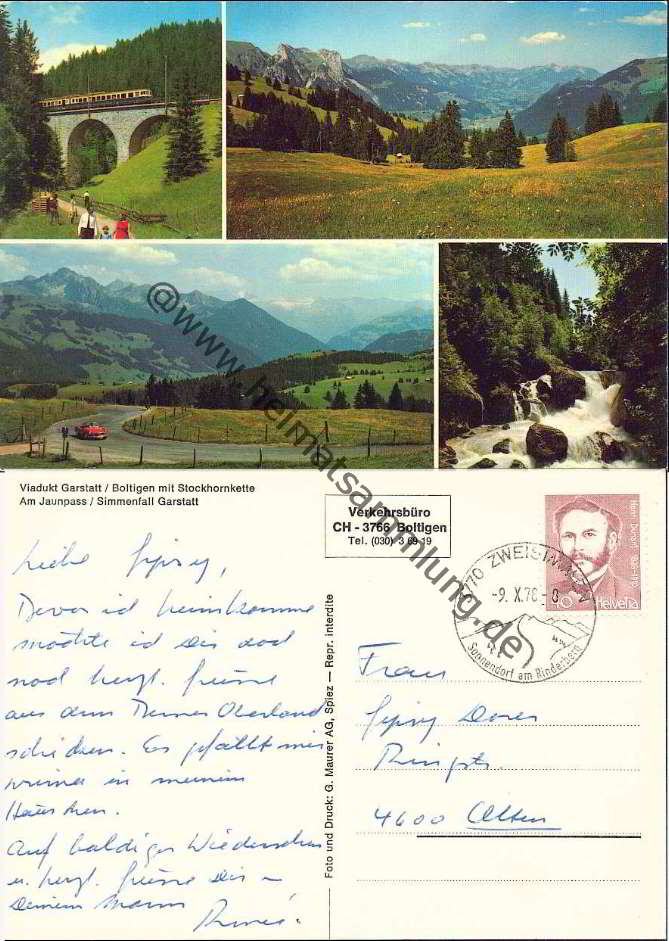 @www.heimatsammlung.de
Viadukt Garstatt / Boltigen mit Stockhornkette
Am Jaunpass / Simmenfall Garstatt
Verkehrsbüro
CH - 3766 Boltigen
Tel. (030) 3 69 19
Henri Dunant 1828-1910
40 Helvetia
3770 ZWEISIMMEN
-9. X.78-8
Sonnendorf am Rinderberg
Foto und Druck: G. Maurer AG, Spiez — Repr. interdite
Liebe
Bevor ich heimkomme
möchte ich Dir doch
noch herzl. Grüsse
aus dem Berner Oberland
schicken. Es gefällt mir
immer in meinem
Häuschen.
Auf baldiges Wiedersehen
u. herzl. Grüsse Dir
Deinem Mann
Frau
Ringstr.
4600 Olten